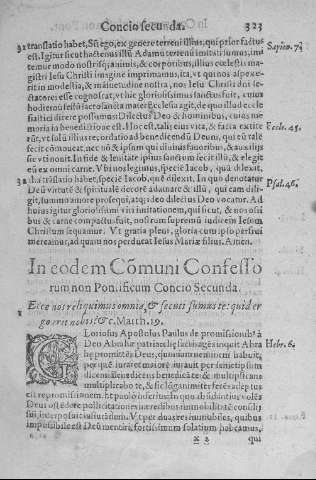 Concio secunda. 323
32 translatio habet, Sũ ego, ex genere terreni illius, qui prior factus Sapien. 7.
est. Igitur sicut hactenus illũ Adamũ terrenũ imitati sumus, imi
temur modo nostrũ
gistri Iesu Christi imagine imprimamus, ita, vt quinos aspexe-
rit in modestia, & mãsuetudine nostra, nos Iesu Christi dñi se-
ctatores esse cognoscat, vt hic gloriosissimus sanctus fuit, cuius
hodierna festa sacrosancta mater Ecclesia agit, de quo illud eccle
siastici dicere possumus Dilectus Deo & hominibus, cuius me
moria in benedictione est. Hoc est, talis eius vita, & facta extite Eccle. 45.
rũt, vt solũ illius recordatio ad benedicendũ Deum, qui eũ talẽ
fecit cõmoueat, nec nõ & ipsum qui diuinis fauoribus, & auxilijs
sic vt inonit. In fide & lenitate ipsius sanctum fecit illũ, & elegit
eũ ex omni carne. Vbi nos legimus, speciẽ Iacob, quã dilexit,
alia trãslatio habet, speciẽ Iacob, quẽ dilexit. In quo denotatur Psal. 46.
Deũ virtutẽ & spiritualẽ decorẽ adamare & illũ, qui eam dili-
git, summo amore prosequi, atque ideo dilectus Deo vocatur. Ad
huius igitur gloriosissimi viri imitationem, qui sicut, & nos ossi
bus & carne compactus fuit, nostrum supremũ iudicem Iesum
Christum sequamur. Vt gratia pleni, gloria cum ipso perfrui
mereamur, ad quam nos perducat Iesus Mariæ filius. Amen.
In eodem Cõmuni Confesso
rum non Pontificum Concio Secunda.
Ecce nos reliquimus omnia, & secuti sumus te: quid er
go erit nobis? &c. Matth. 19.
GLoriosus Apostolus Paulus de promissionib' à
Deo Abrahæ patriarchę factis ages inquit Abra Hebr. 6.
hæ promittẽs Deus, quoniam neminem habuit,
per quẽ iuraret maiorẽ iurauit per semetipsum
dicens: Benedicẽs benedicã te & multiplicans
multiplicabo te, & sic lõganimiter ferẽs adeptus
est repromissionem. Et paulo inferius: In quo abũdantius volẽs
Deus ostẽdere pollicitationes hæredibus immobilitatẽ consilij
sui, interposuit iusiurandũ. Vt per duas res immobiles, quibus
impossibile est Deũ mentiri, fortissimum solatium habeamus,
x 2 qui